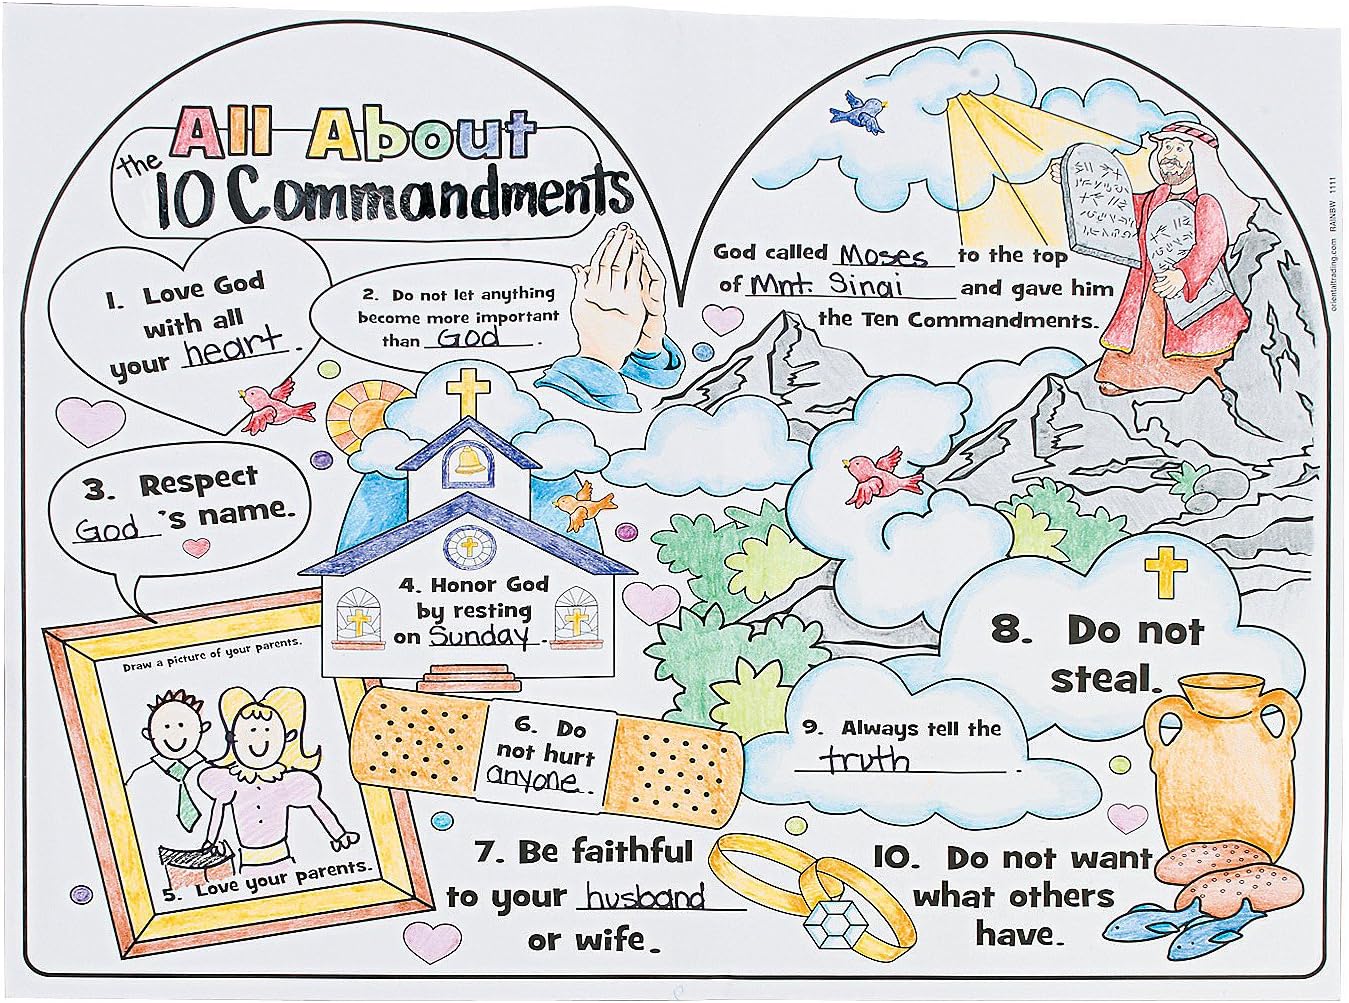 All About
the
10 Commandments
1. Love God
with all
your heart.
2. Do not let anything
become more important
than God.
3. Respect
God's name.
4. Honor God
by resting
on Sunday.
Draw a picture of your parents.
5. Love your parents.
6. Do
not hurt
anyone.
7. Be faithful
to your husband
or wife.
God called Moses to the top
of Mnt. Sinai and gave him
the Ten Commandments.
8. Do not
steal.
9. Always tell the
truth.
10. Do not want
what others
have.
orientaltrading.com RAINBW 1111